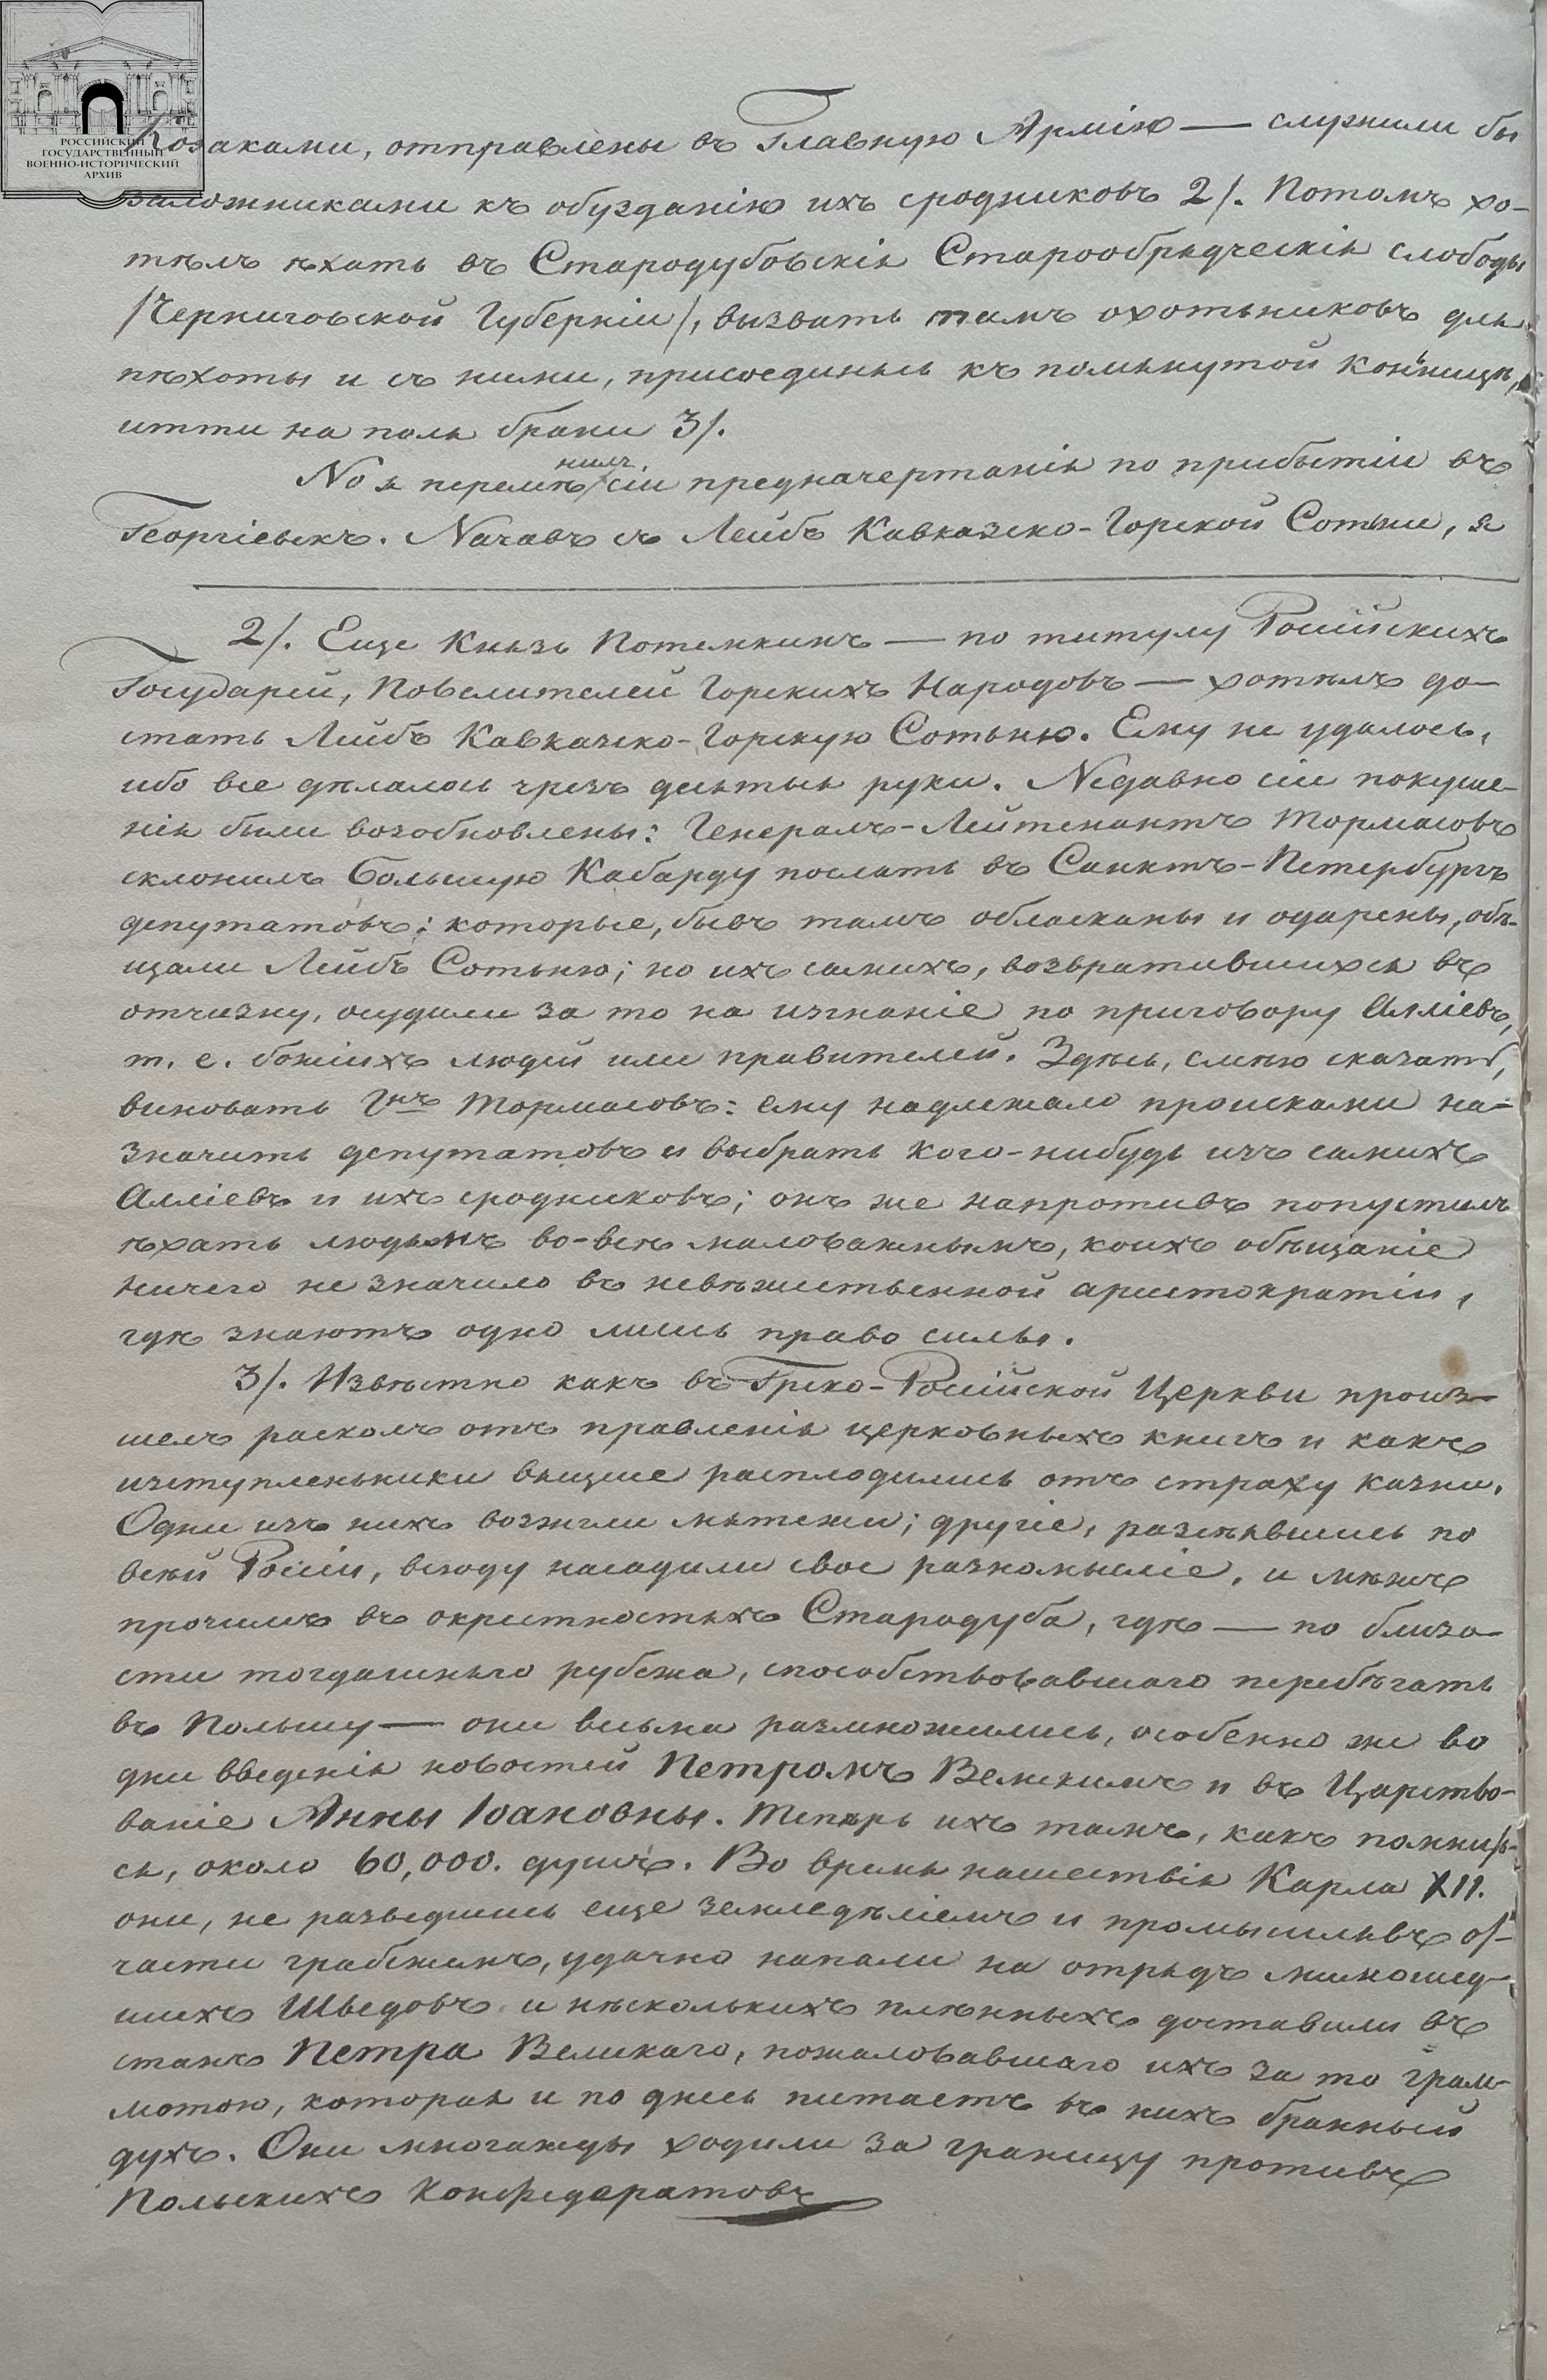 РОССИЙСКИЙ
ГОСУДАРСТВЕННЫЙ
ВОЕННО-ИСТОРИЧЕСКИЙ
АРХИВ
Козаками, отправлены въ Главную Армію — служили бы
заложниками къ обузданію ихъ сродниковъ 2/. Потомъ хо-
тѣлъ ѣхать въ Стародубовскія Старообрядческія слободы
/Черниговской Губерніи/, вызвать тамъ охотьниковъ для
пѣхоты и съ ними, присоединясь къ помянутой коньницѣ,
итти на поля брани 3/.
нилъ
Но я переме сіи предначертанія по прибытіи въ
Георгіевскъ. Начавъ съ Лейбъ Кавказско-Горской Сотьни, я
2/. Еще Князь Потемкинъ — по титулу Россійскихъ
Государей, Повелителей Горскихъ Народовъ — хотѣлъ до-
стать Лейбъ Кавказско-Горскую Сотьню. Ему не удалось,
ибо все дѣлалось чрезъ десятыя руки. Недавно сіи покуше-
нія были возобновлены: Генералъ-Лейтенантъ Тормасовъ
склонилъ Большую Кабарду послать въ Санктъ-Петербургъ
депутатовъ: которые, бывъ тамъ обласканы и одарены, обѣ-
щали Лейбъ Сотьню; но ихъ самихъ, возвратившихся въ
отчизну, осудили за то на изгнаніе по приговору Алліевъ,
т. е. божіихъ людей или правителей. Здѣсь, смѣю сказать,
виноватъ Гнъ Тормасовъ: ему надлежало происками на-
значить депутатовъ и выбрать кого-нибудь изъ самихъ
Алліевъ и ихъ сродниковъ; онъ же напротивъ попустилъ
ѣхать людямъ во-все маловажнымъ, коихъ обѣщаніе
ничего не значило въ невѣжественной аристократіи,
гдѣ знаютъ одно лишь право силы.
3/. Извѣстно какъ въ Греко-Россійской Церкви произ-
шелъ расколъ отъ правленія церковныхъ книгъ и какъ
изступленьники вящше расплодились отъ страху казни.
Одни изъ нихъ возжгли мятежи; другіе, разсѣявшись по
всей Россіи, всюду насадили свое разномысліе, и мѣжъ
прочимъ въ окрестностяхъ Стародуба, гдѣ — по близо-
сти тогдашняго рубежа, способствовавшаго перебѣгать
въ Польшу — они весьма размножились, особенно же во
дни введенія новостей Петромъ Великимъ и въ Царство-
ваніе Анны Іоановны. Теперь ихъ тамъ, какъ помнит-
ся, около 60,000. душъ. Во время нашествія Карла XII.
они, не разведшись еще земледѣліемъ и промышлявъ от-
части грабежемъ, удачно напали на отрядъ мимошед-
шихъ Шведовъ и нѣсколькихъ плѣнныхъ доставили въ
станъ Петра Великаго, пожаловавшаго ихъ за то грам-
мотою, которая и по днесь питаетъ въ нихъ бранный
духъ. Они многажды ходили за границу противъ
Польскихъ Конфедератовъ